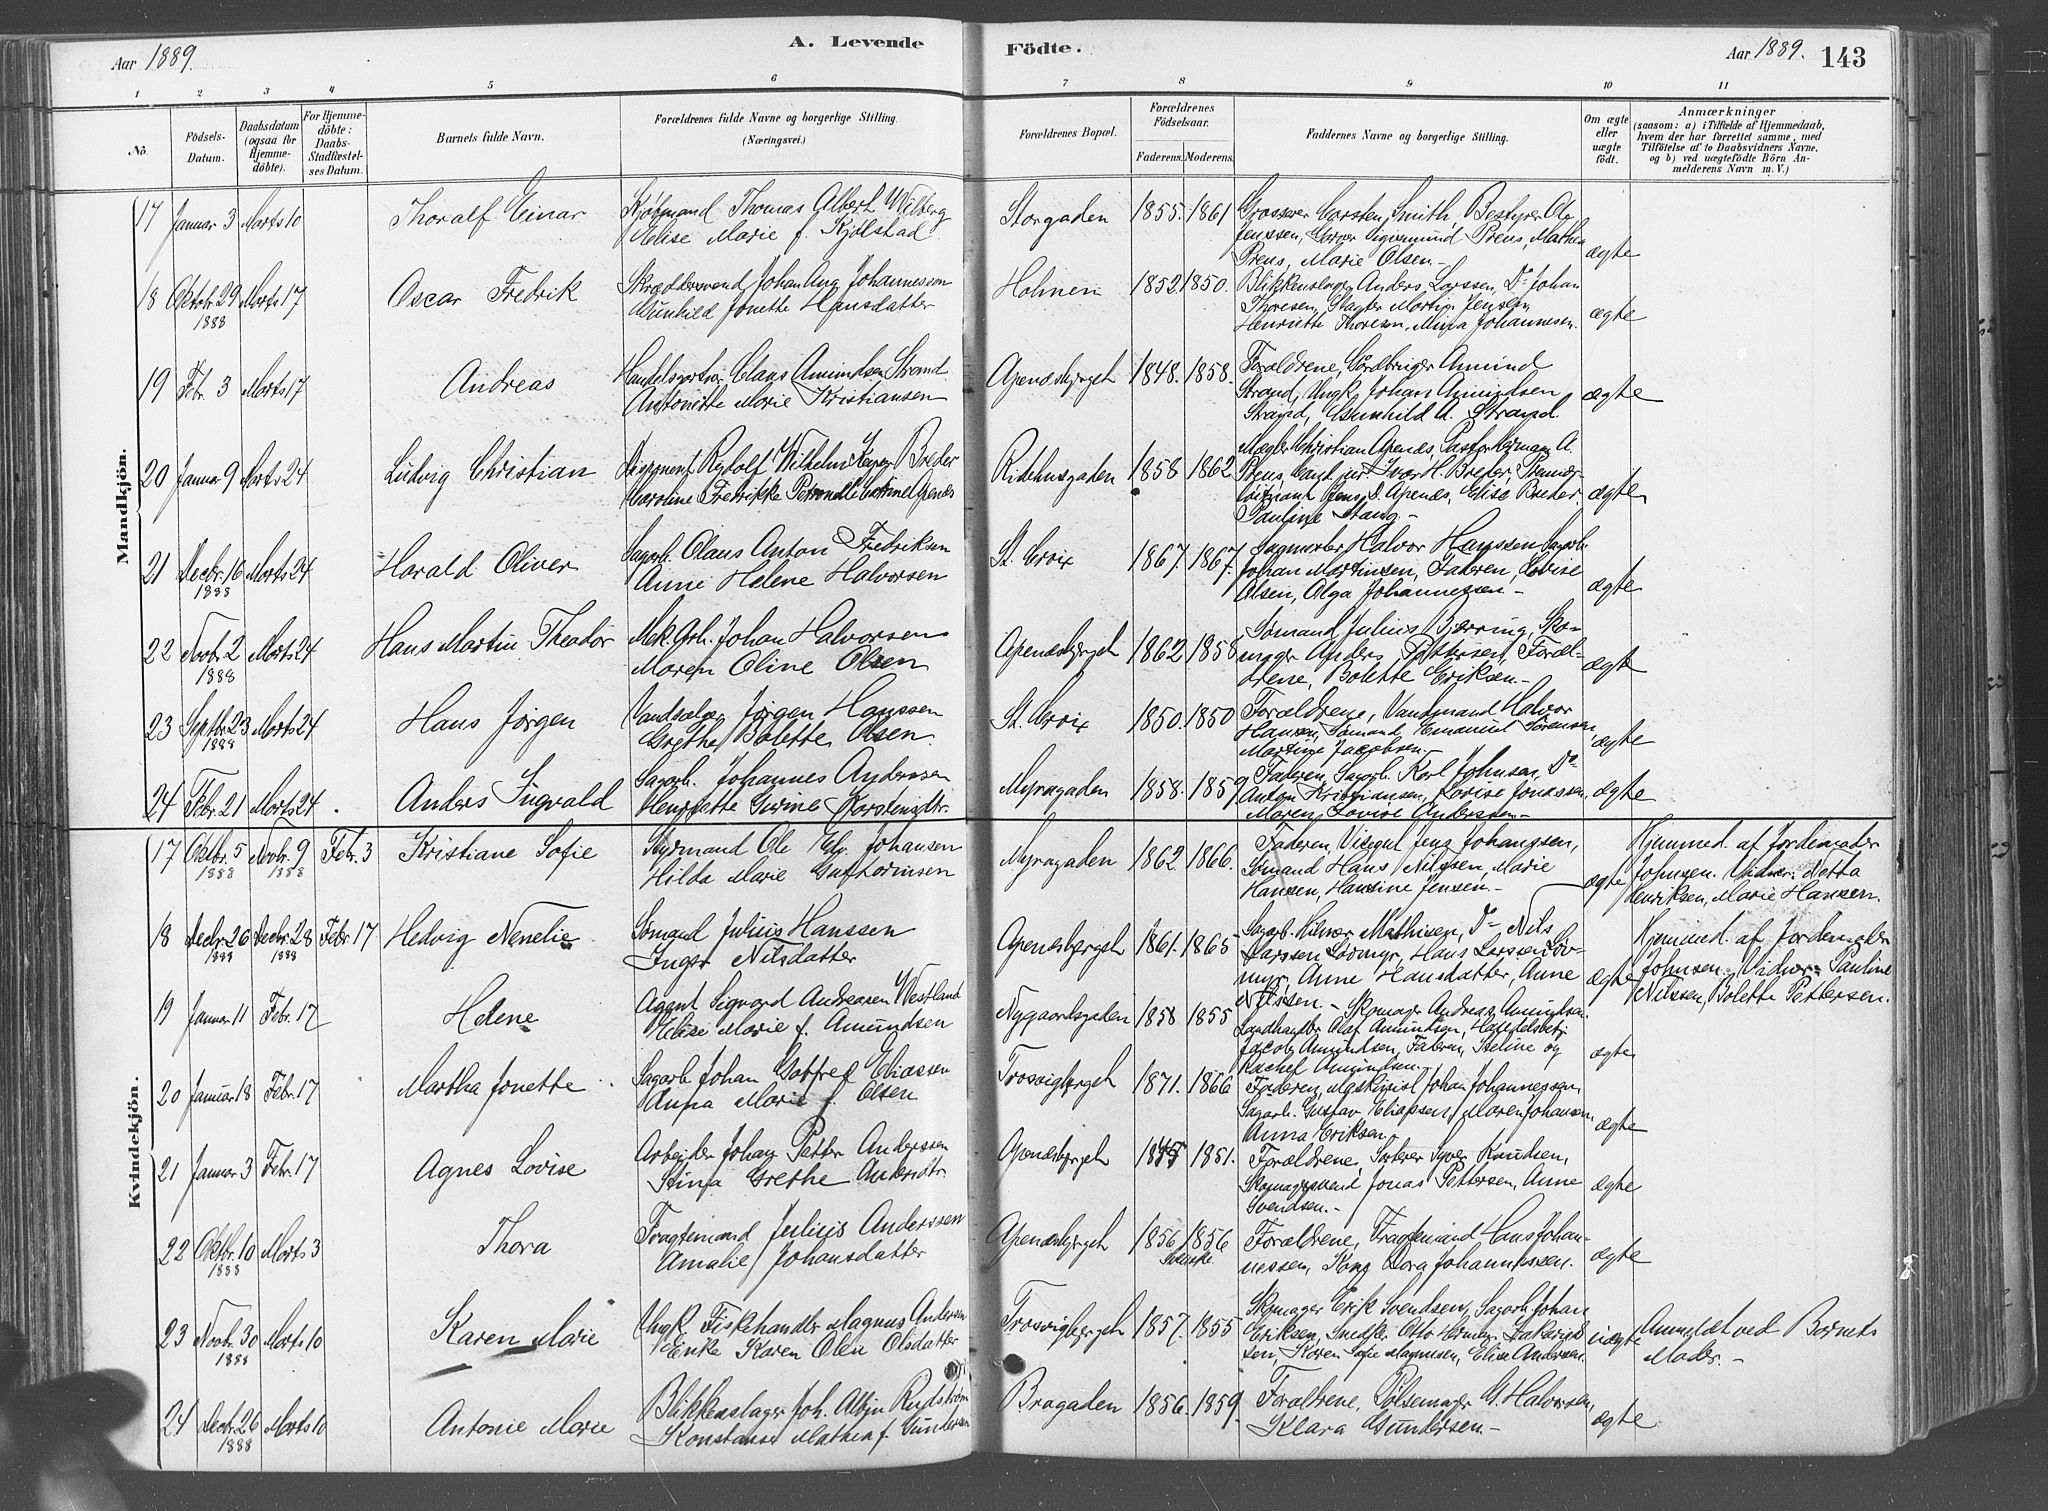 Aar 1889.
A. Levende
Födte.
Aar 1889.
143
1 2 3 4 5 6 7 8 9 10 11
No.
Födsels-
Datum.
Daabsdatum
(ogsaa for
Hjemme-
döbte).
For Hjemme-
döbte:
Daabs-
Stadfæstel-
ses Datum.
Barnets fulde Navn.
Forældrenes fulde Navne og borgerlige Stilling.
(Næringsvei.)
Forældrenes Bopæl.
Forældrenes
Födselsaar.
Faderens. Moderens.
Faddernes Navne og borgerlige Stilling.
Om ægte
eller
uægte
födt.
Anmærkninger
(saasom: a) i Tilfælde af Hjemmedaab,
hvem der har forrettet samme, med
Tilföielse af to Daabsvidners Navne,
og b) ved uægtefödte Börn An-
melderens Navn m. V.)
Mandkjön.
17 Januar 3 Marts 10 Thoralf Einar Kjøbmand Thomas Albert Wilberg
Elise Marie f. Kjølstad
Storgaden 1855. 1861 Grosserer Carsten Smith, Bestyrer Ole
Jenssen, Garver Sigismund Prens, Mathea
Prens, Marie Olsen.- ægte
18 Oktobr. 29 Marts 17 Oscar Fredrik Skræddersvend Johan Aug. Johannesson
1888 Gunhild Jonette Hansdatter
Holmen 1852. 1850. Blikkenslager Anders Larssen, Do Johan
Thoresen, Slagter Martin Jensen,
Henriette Thoresen, Mina Johannesen. ægte
19 Febr. 3 Marts 17 Andreas Handelsgartner Claus Amundsen Strand
Antonette Marie Kristiansen
Apenæsbjerget 1848. 1858. Forældrene, Gårdbruger Amund
Strand, Ungk. Johan Amundsen
Strand, Gunhild A. Strand. ægte
20 Januar 9 Marts 24 Ludvig Christian Rudolf Wilhelm Breder
Karoline Fredrikke Petronelle Apenæs
Ridehusgaden 1858 1862 Mægler Christian Apenæs, Pastor Herman A.
Prens, Cand. jur. Ivar H. Breder, Premier-
løitnant Jens S. Apenæs, Elise Breder,
Pauline Stang.- ægte
21 Decbr. 16 Marts 24 Harald Oliver Sagarb. Olaus Anton Fredriksen
1888 Anne Helene Halvorsen
St. Croix 1867. 1867. Sagmester Halvor Hanssen, Sagarb.
Johan Martinsen, Faderen, Lovise
Olsen, Olga Johannessen.- ægte
22 Novbr. 2 Marts 24 Hans Martin Theodor Mek. Arb. Johan Halvorsen
1888 Maren Oline Olsen
Apenæsbjerget 1862 1858 Sømand Julius Bjerring, Sko-
mager Anders Pettersen, Foræl-
drene, Bolette Eriksen.- ægte
23 Septbr. 23 Marts 24 Hans Jørgen Vandsælger Jørgen Hanssen
1888 Grethe Bolette Olsen.
St. Croix 1850. 1850 Forældrene, Vandmand Halvor
Hansen, Sømand Emanuel Sørensen,
Martine Jacobsen.- ægte
24 Febr. 21 Marts 24 . Anders Ingvald Sagarb. Johannes Anderssen
Henriette Karstensdtr.
Myragaden 1858. 1859 Faderen, Sagarb. Karl Johnsen, Do
Anton Kristiansen, Lovise Jonassen,
Maren Lovise Anderssen.- ægte
Kvindekjön.
17 Oktbr. 5 Novbr. 9 Febr. 3 Kristiane Sofie Styrmand Ole Johansen
1888 1888 Hilda Marie Guttormsen
Myragaden 1862 1866. Faderen, Jens Johanssen,
Sømand Hans Nilssen, Marie
Hansen, Hansine Jensen.- ægte
Hjemmed. af Jordemoder
Johnsen. Vidner: Netta
Henriksen, Marie Hansen.
18 Decbr. 26 Decbr. 28 Febr. 17 Hedvig Nenelie Sømand Julius Hanssen
1888 1888 Inger Nilsdatter
Apenæsbjerget 1861. 1865 Sagarb. Hilmar Mathisen, Do Nils
Larssen Lövmyr, Hans Larssen Löv-
myr, Anne Hansdatter, Anne
Nilssen.- ægte
Hjemmed. af Jordemoder
Johnsen. Vidner: Pauline
Nilssen, Bolette Pettersen.
19 Januar 11 Febr. 17 Helene Agent Sigvard Andreasen Westland
Elise Marie f. Amundsen
Nygaardsgaden 1858 1855 Skomager Andreas Amundsen
Landhandler Olaf Amundsen, Handelsbetj.
Jacob Amundsen, Faderen, Steline og
Rachel Amundsen ægte
20 Januar 18 Febr. 17 Martha Jonette Sagarb. Johan Gotfred Eliassen
Anna Marie f. Olsen
Trosvigbjerget 1871. 1866 Faderen, Maskinist Johan Johannessen,
Sagarb. Gustav Eliassen, Maren Johansen,
Anna Eriksen. ægte
21 Januar 3 Febr. 17 Agnes Lovise Arbejder Johan Petter Anderssen
Stina Grethe Andersdtr.
Apenæsbjerget 1845 1851. Forældrene, Sorterer Syver Knudsen,
Skomagersvend Jonas Pettersen, Anne
Svendsen.- ægte
22 Oktbr. 10 Marts 3 Thora Fragtemand Julius Anderssen
1888 Amalie Johansdatter
Apenæsbjerget 1856 1856 Forældrene, Fragtemand Hans Johan-
Svenske nessen, Kone Dora Johannessen. ægte
23 Novbr. 30 Marts 10 Karen Marie Ungk. Fiskehandler Magnus Andersen
1888 Enke Karen Olea Olsdatter
Trosvigbjerget 1857. 1855 Skomager Erik Svendsen, Sagarb. Johan
Eriksen, Snedker Otto Herman Zakarias-
sen, Karen Sofie Magnusen, Elisa Andersen. uægte
Anmeldt ved Barnets
Moder.-
24 Decbr. 26 Marts 10 Antonie Marie Blikkenslager Joh. Albin Rudstrøm
1888 Konstanse Mathea f. Gundersen
Brogaden 1856. 1859. Forældrene, Pølsemager G. Halvorsen,
Klara Gundersen.- ægte